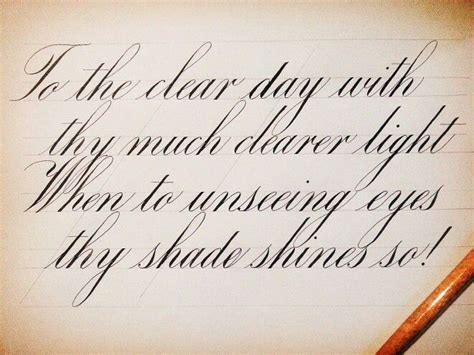 To the clear day with
thy much clearer light
When to unseeing eyes
thy shade shines so!